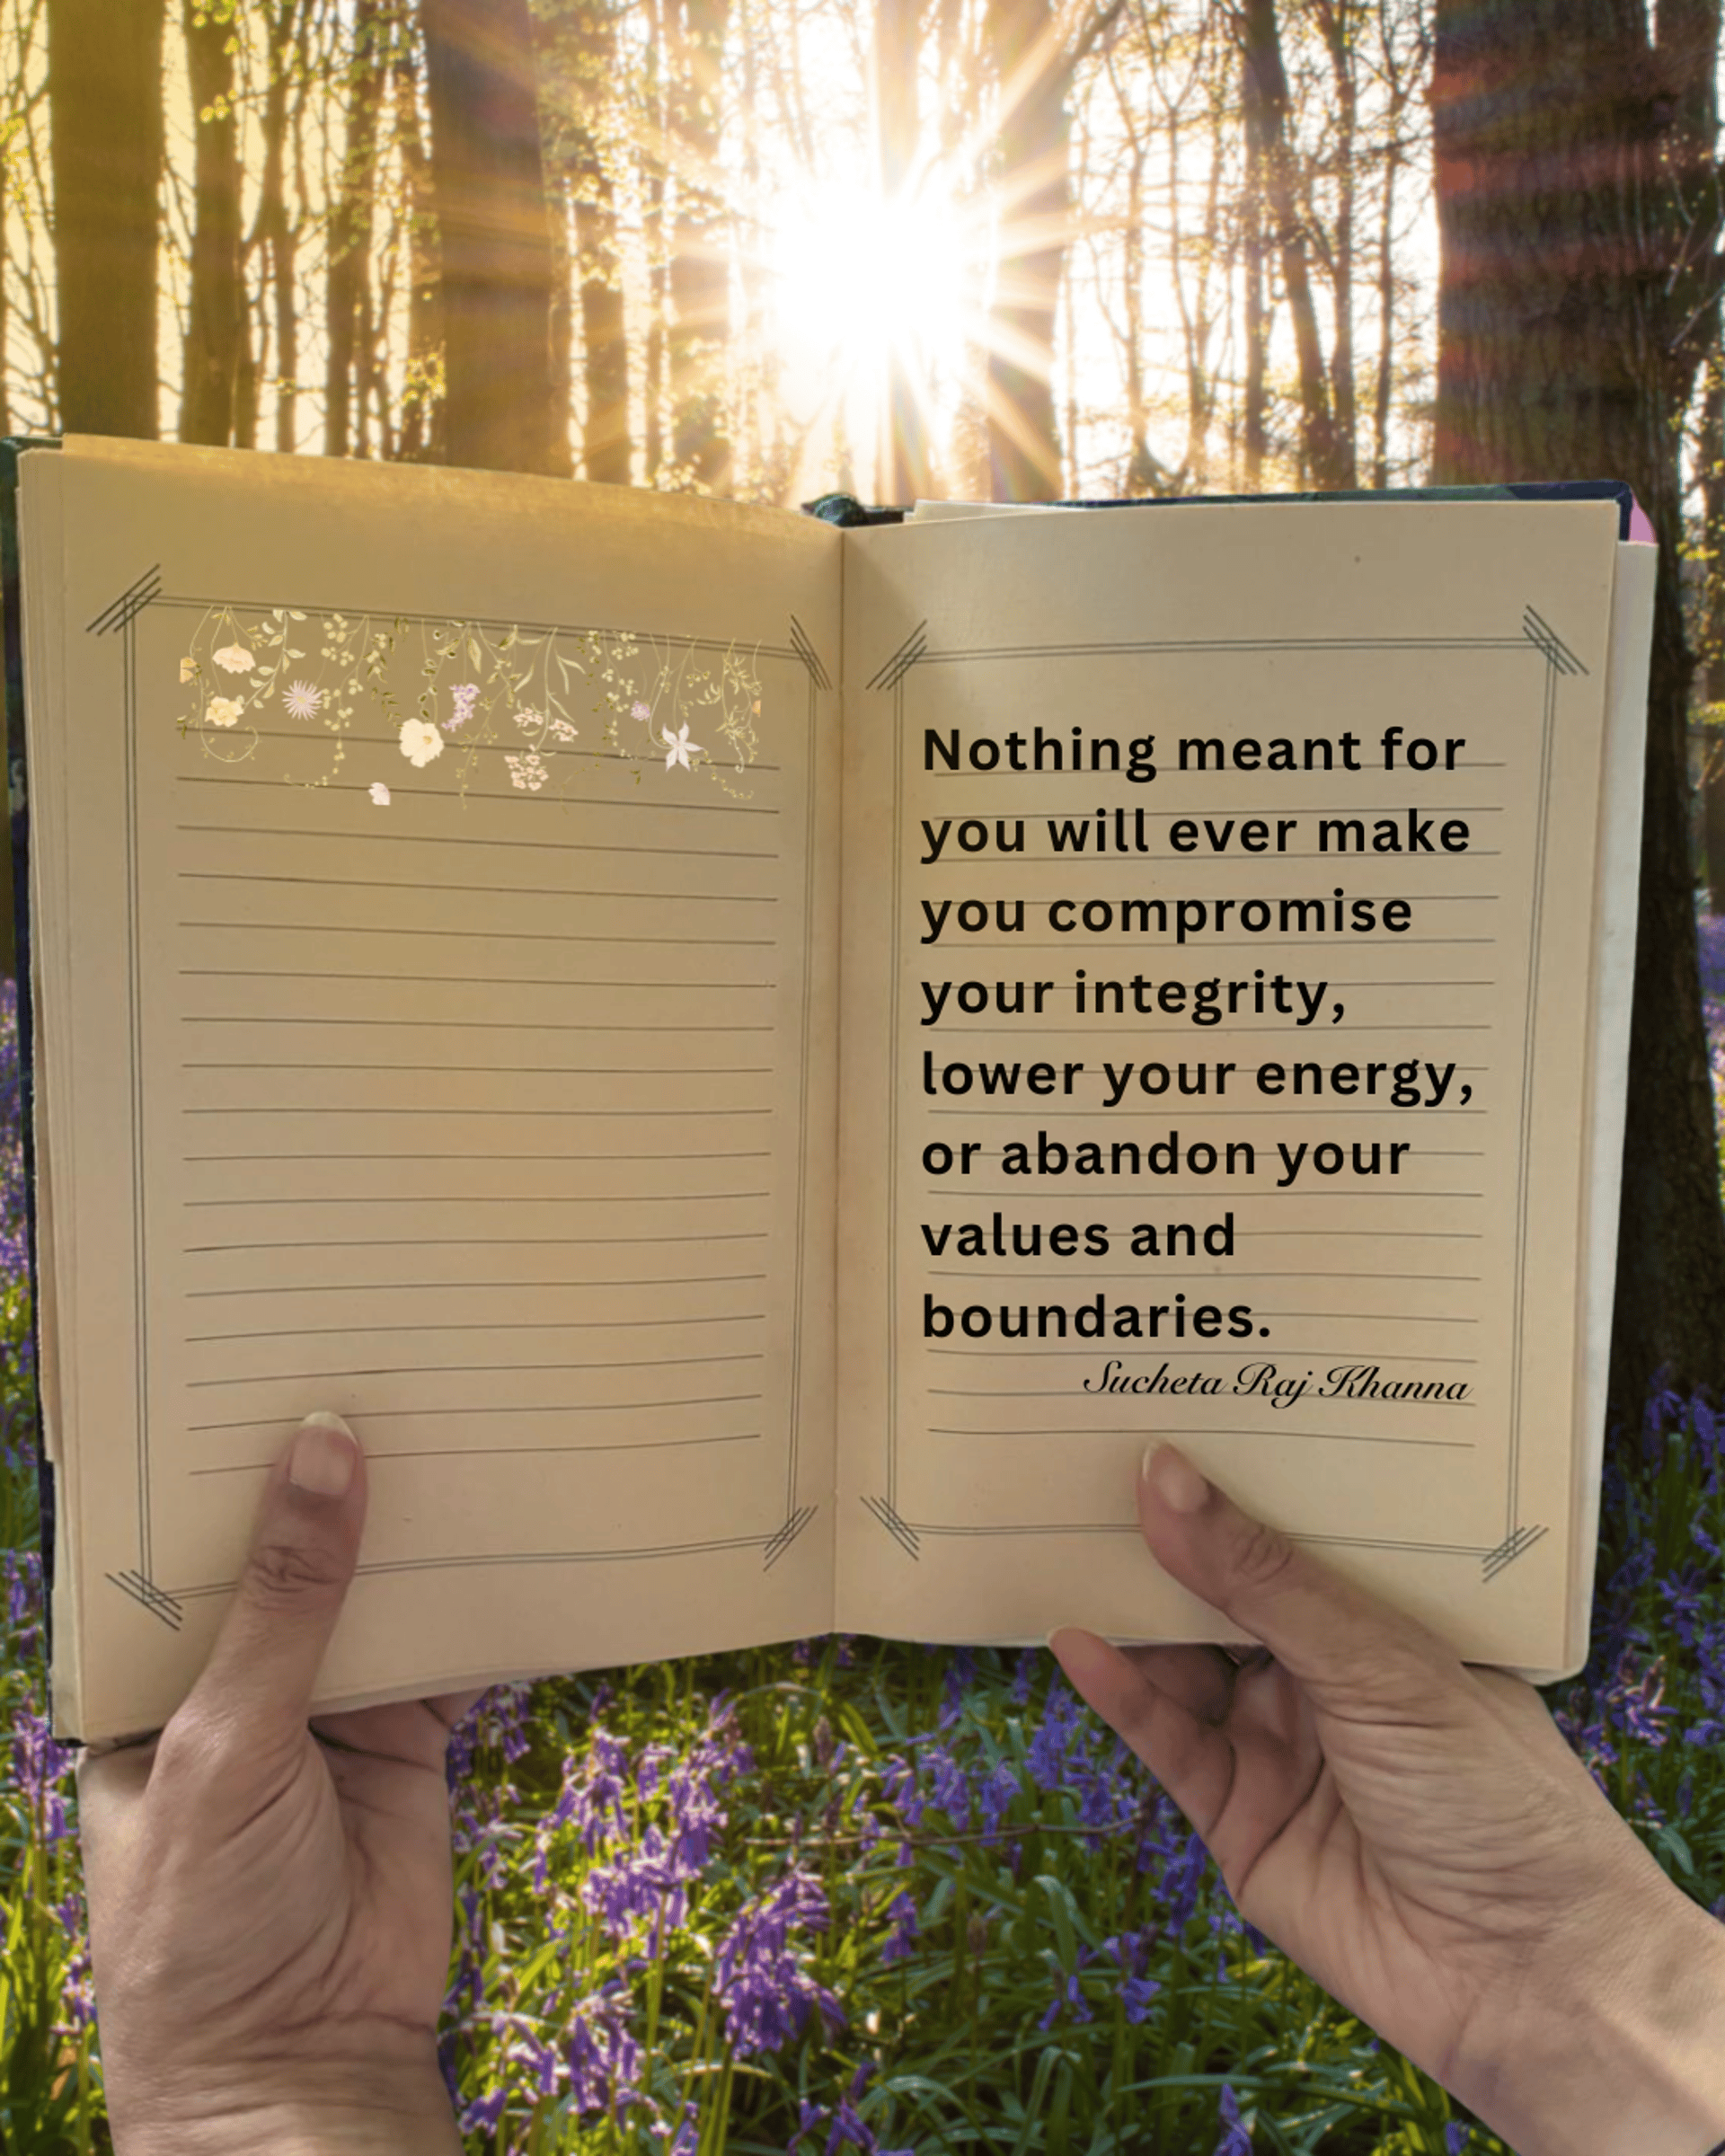 Nothing meant for
you will ever make
you compromise
your integrity,
lower your energy,
or abandon your
values and
boundaries.
Sucheta Raj Khanna